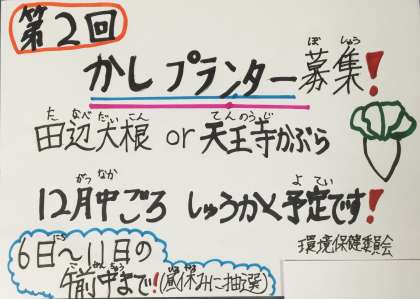 第2回
かしプランター募集!
田辺大根 or 天王寺かぶら
12月中ごろ しゅうかく予定です!
環境保健委員会
6日～11日の
午前中まで!(昼休みに抽選)